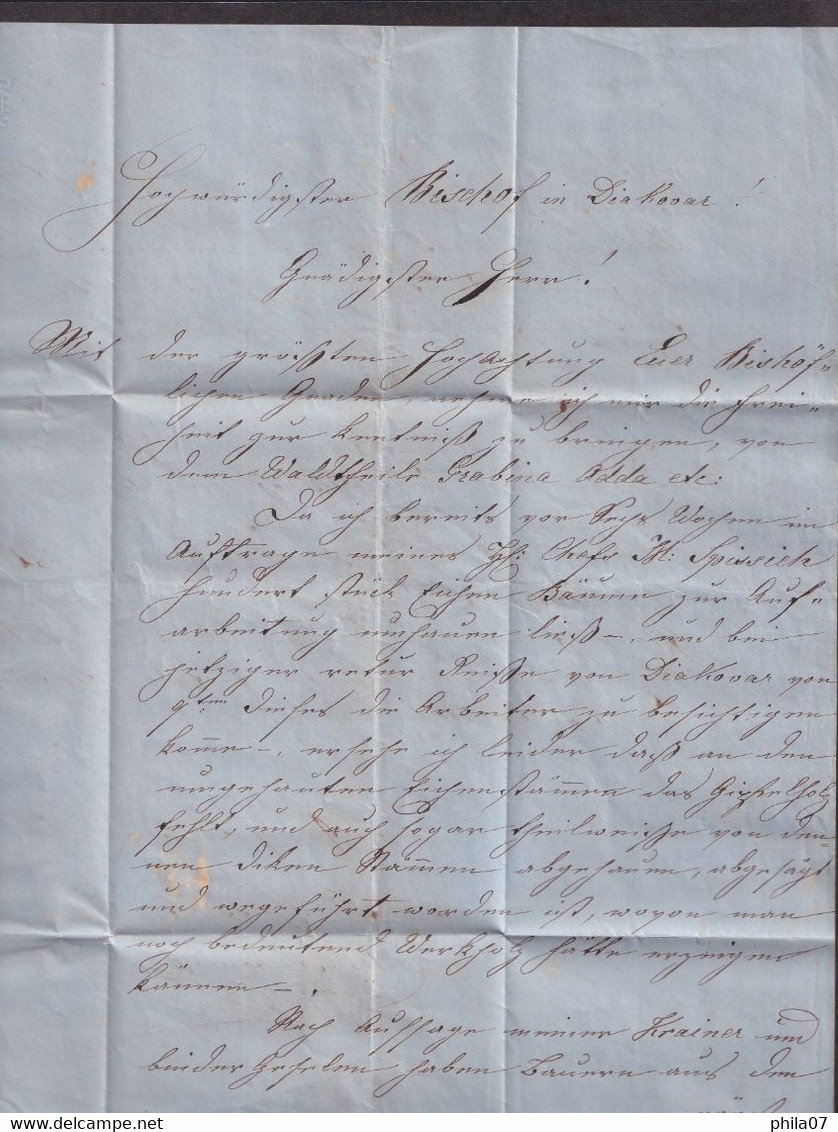 Hochwürdigster Bischof in Diakovar!
Gnädigster Herr!
Mit der größten Hochachtung Euer Bishöf=
lichen Gnaden, nehme ich mir die Frei=
heit zur Kentniß zu bringen, von
dem Waldtheile Grabina Adda etc:
Da ich bereits vor Sechs Wochen im
Auftrage meines H: Chefs M: Spissich
hundert stück Eichen Bäume zur Auf=
arbeitung umhauen ließ –, und bei
jetziger retur Reiße von Diakovar von
9ten dieses die Arbeiter zu besichtigen
komme –, ersehe ich leider daß an den
umgehauten Eichenstämen das Gipfelholz
fehlt, und auch sogar theilweiße von den=
nen diken Stämmen abgehauen, abgesägt
und wegeführt worden ist, wovon man
noch bedeutend Werkholz hätte erzeigen
können –.
Nach Aussage meiner Krainer und
binder Geselen haben Bauern aus den
delcampe.net
phila07